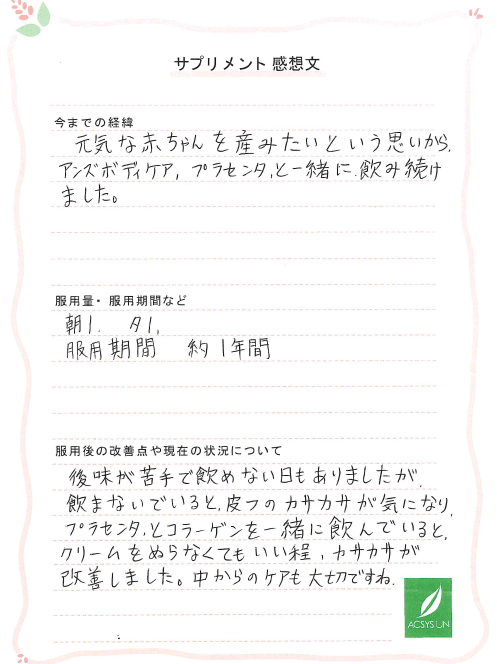 サプリメント 感想文
今までの経緯
元気な赤ちゃんを産みたいという思いから、
アンズボディケア, プラセンタ,と一緒に.飲み続け
ました。
服用量・服用期間など
朝1. 夕1.
服用期間 約1年間
服用後の改善点や現在の状況について
後味が苦手で飲めない日もありましたが.
飲まないでいると,皮フのカサカサが気になり,
プラセンタ,とコラーゲンを一緒に飲んでいると,
クリームをぬらなくてもいい程,カサカサが
改善しました。中からのケアも大切ですね.
ACSYSUN